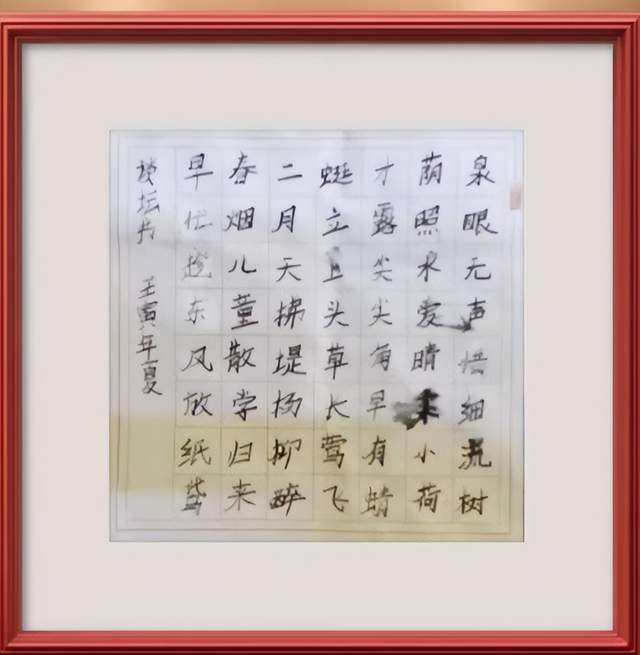 泉眼无声惜细流树
荫照水爱晴柔小荷
才露尖尖角早有蜻
蜓立上头草长莺飞
二月天拂堤杨柳醉
春烟儿童散学归来
早忙趁东风放纸鸢
坛书 壬寅年夏